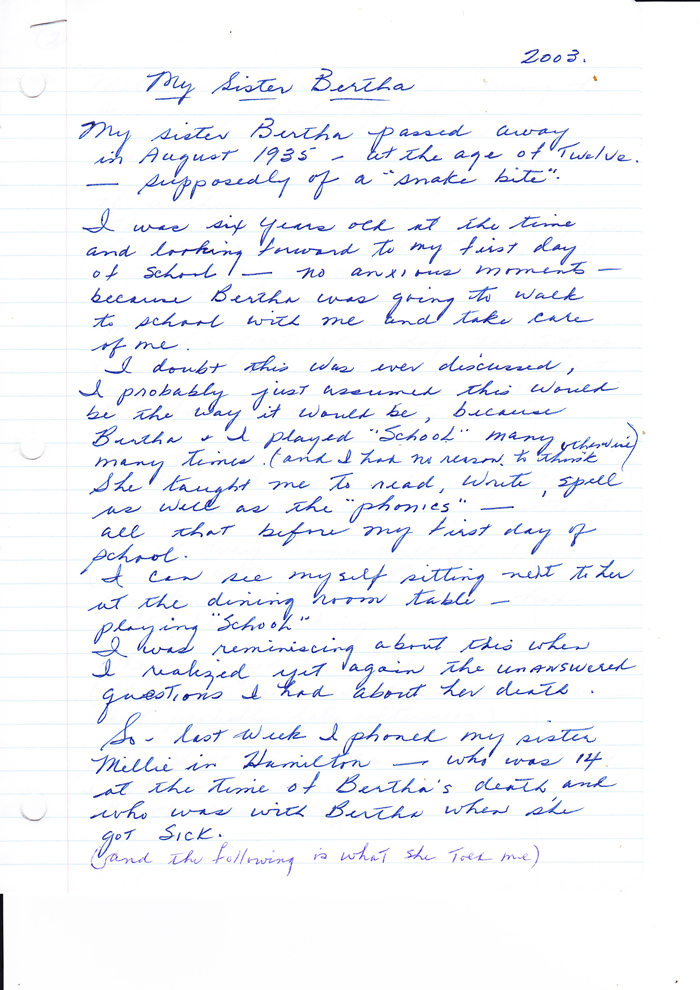 2003.
My Sister Bertha
My sister Bertha passed away
in August 1935 - at the age of Twelve.
— supposedly of a "snake bite".
I was six years old at the time
and looking forward to my first day
of School — no anxious moments —
because Bertha was going to walk
to school with me and take care
of me.
I doubt this was ever discussed,
I probably just assumed this would
be the way it would be, because
Bertha & I played "School" many
many times. (and I had no reason to think otherwise)
She taught me to read, write, spell
as well as the "phonics" —
all that before my first day of
school.
I can see myself sitting next to her
at the dining room table —
playing "School"
I was reminiscing about this when
I realized yet again the unanswered
questions I had about her death.
So - last week I phoned my sister
Millie in Hamilton — who was 14
at the time of Bertha's death and
who was with Bertha when she
got sick.
(and the following is what she told me)